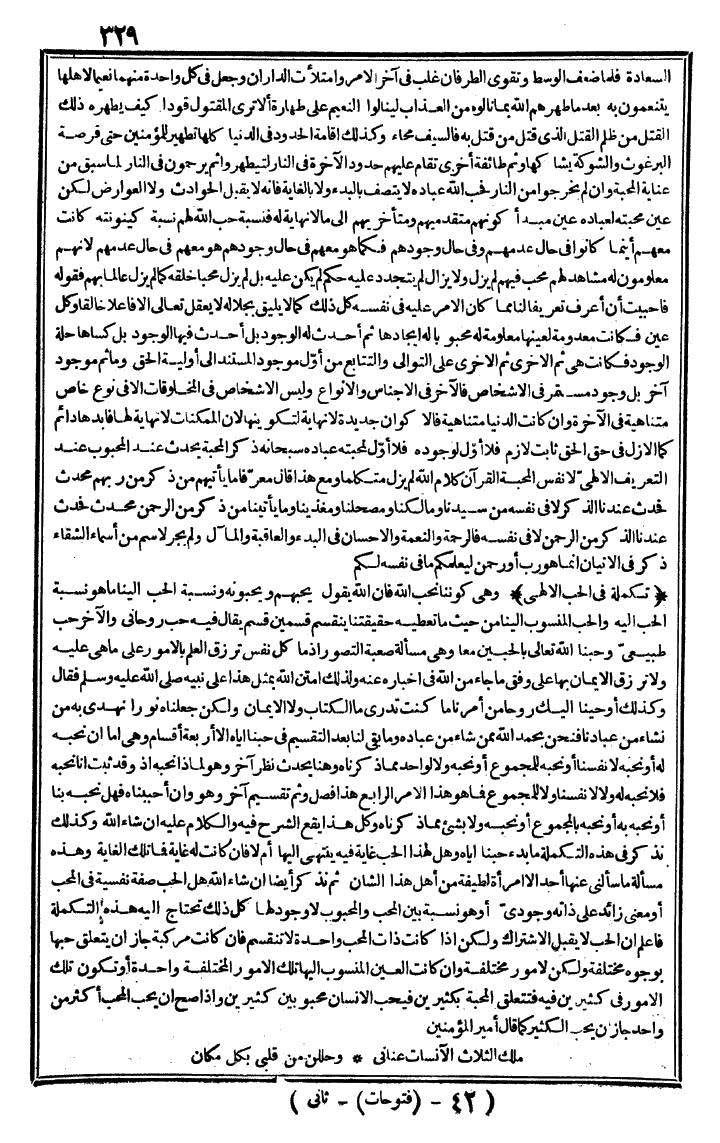 ٣٢٩
السعادة فلما ضعف الوسط وتقوى الطرفان غلب في آخر الامر وامتلأت الداران وجعل في كل واحدة منهما نعيما لاهلها
يتنعمون به بعد ما طهرهم الله بما نالوه من العذاب لينالوا النعيم على طهارة ألا ترى المقتول قودا كيف يطهره ذلك
القتل من ظلم القتل الذى قتل من قتل به فالسيف محاء وكذلك اقامة الحدود في الدنيا كلها تطهير للمؤمنين حتى قرصة
البرغوث والشوكة يشاكها وثم طائفة أخرى تقام عليهم حدود الآخرة في النار ليتطهروا ثم يرحمون في النار لما سبق من
عناية المحبة وان لم يخرجوا من النار فحب الله عباده لا يتصف بالبدء ولا بالغاية فانه لا يقبل الحوادث ولا العوارض لكن
عين محبته لعباده عين مبدأ كونهم متقدميهم ومتأخريهم الى ما لا نهاية له فنسبة حب الله لهم نسبة كينونته كانت
معهم أينما كانوا في حال عدمهم وفي حال وجودهم فكما هو معهم في حال وجودهم هو معهم في حال عدمهم لانهم
معلومون له مشاهد لهم محب فيهم لم يزل ولا يزال لم يتجدد عليه حكم لم يكن عليه بل لم يزل محبا خلقه كما لم يزل عالما بهم فقوله
فاحببت أن أعرف تعريفا لنا بما كان الامر عليه في نفسه كل ذلك كما لا يليق بجلاله لا يعقل تعالى الا فاعلا خالقا وكل
عين فكانت معدومة لعينها معلومة له محبوبا له ايجادها ثم أحدث له الوجود بل أحدث فيها الوجود بل كساها حلة
الوجود فكانت هى ثم الاخرى ثم الاخرى على التوالى والتتابع من أوّل موجود المستند الى أولية الحق وما ثم موجود
آخر بل وجود مستمر في الاشخاص فالآخر في الاجناس والانواع وليس الاشخاص في المخلوقات الا في نوع خاص
متناهية في الآخرة وان كانت الدنيا متناهية فالاكوان جديدة لا نهاية لتكوينها لان الممكنات لا نهاية لها فابدها دائم
كما الازل في حق الحق ثابت لازم فلا أوّل لوجوده فلا أوّل لمحبته عباده سبحانه ذكر المحبة يحدث عند المحبوب عند
التعريف الالهىّ لا نفس المحبة القرآن كلام الله لم يزل متكلما ومع هذا قال معرّفا ما يأتيهم من ذكر من ربهم محدث
فحدث عندنا الذكر لا في نفسه من سيدنا ومالكنا ومصلحنا ومغذينا وما يأتينا من ذكر من الرحمن محدث فحدث
عندنا الذكر من الرحمن لا في نفسه فالرحمة والنعمة والاحسان في البدء والعاقبة والمآل ولم يجر لاسم من أسماء الشقاء
ذكر في الاتيان انما هو رب أو رحمن ليعلمكم ما في نفسه لكم
﴿تكملة في الحب الالهى﴾ وهى كوننا نحب الله فان الله يقول يحبهم ويحبونه ونسبة الحب الينا ما هو نسبة
الحب اليه والحب المنسوب الينا من حيث ما تعطيه حقيقتنا ينقسم قسمين قسم يقال فيه حب روحانى والآخر حب
طبيعىّ وحبنا الله تعالى بالحبين معا وهى مسألة صعبة التصور اذ ما كل نفس ترزق العلم بالامور على ما هى عليه
ولا ترزق الايمان بها على وفق ما جاء من الله في اخباره عنه ولذلك امتن الله بمثل هذا على نبيه صلى الله عليه وسلم فقال
وكذلك أوحينا اليك روحا من أمرنا ما كنت تدرى ما الكتاب ولا الايمان ولكن جعلناه نورا نهدى به من
نشاء من عبادنا فنحن بحمد الله ممن شاء من عباده وما بقى لنا بعد التقسيم في حبنا اياه الا أربعة أقسام وهى اما ان نحبه
له أو نحبه لانفسنا أو نحبه للمجموع أو نحبه ولا لواحد مما ذكرناه وهنا يحدث نظر آخر وهو لماذا نحبه اذ وقد ثبت انا نحبه
فلا نحبه له ولا لانفسنا ولا للمجموع فما هو هذا الامر الرابع هذا فصل وثم تقسيم آخر وهو وان أحببناه فهل نحبه بنا
أو نحبه به أو نحبه بالمجموع أو نحبه ولا بشئ مما ذكرناه وكل هذا يقع الشرح فيه والكلام عليه ان شاء الله وكذلك
نذكر في هذه التكملة ما بدء حبنا اياه وهل لهذا الحب غاية فيه ينتهى اليها أم لا فان كانت له غاية فما تلك الغاية وهذه
مسألة ما سألنى عنها أحد الا امرأة لطيفة من أهل هذا الشان ثم نذكر أيضا ان شاء الله هل الحب صفة نفسية في المحب
أو معنى زائد على ذاته وجودىّ أو هو نسبة بين المحب والمحبوب لا وجود لها كل ذلك تحتاج اليه هذه التكملة
فاعلم ان الحب لا يقبل الاشتراك ولكن اذا كانت ذات المحب واحدة لا تنقسم فان كانت مركبة جاز ان يتعلق حبها
بوجوه مختلفة ولكن لامور مختلفة وان كانت العين المنسوب اليها تلك الامور المختلفة واحدة أو تكون تلك
الامور في كثيرين فيه فتتعلق المحبة بكثيرين فيحب الانسان محبوبين كثيرين واذا صح ان يحب المحب أكثر من
واحد جاز ان يحب الكثير كما قال أمير المؤمنين
ملك الثلاث الآنسات عنانى * وحللن من قلبى بكل مكان
(٤٢ - (فتوحات) - ثانى)